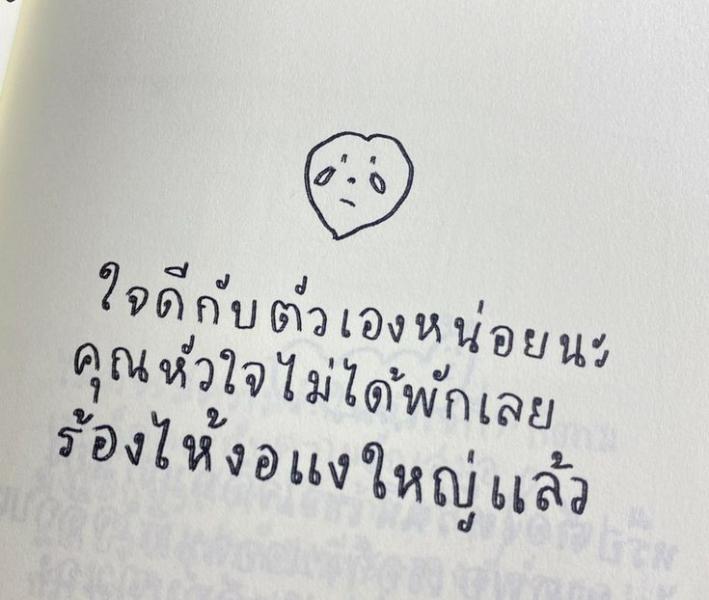 ใจดีกับตัวเองหน่อยนะ
คุณหัวใจไม่ได้พักเลย
ร้องไห้งอแงใหญ่แล้ว